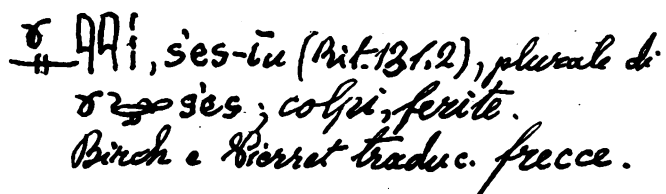 , s'es-īu (Rit. 131.2), plurale di
s'es; colpi, ferite.
Birch e Pierret traduc. frecce.